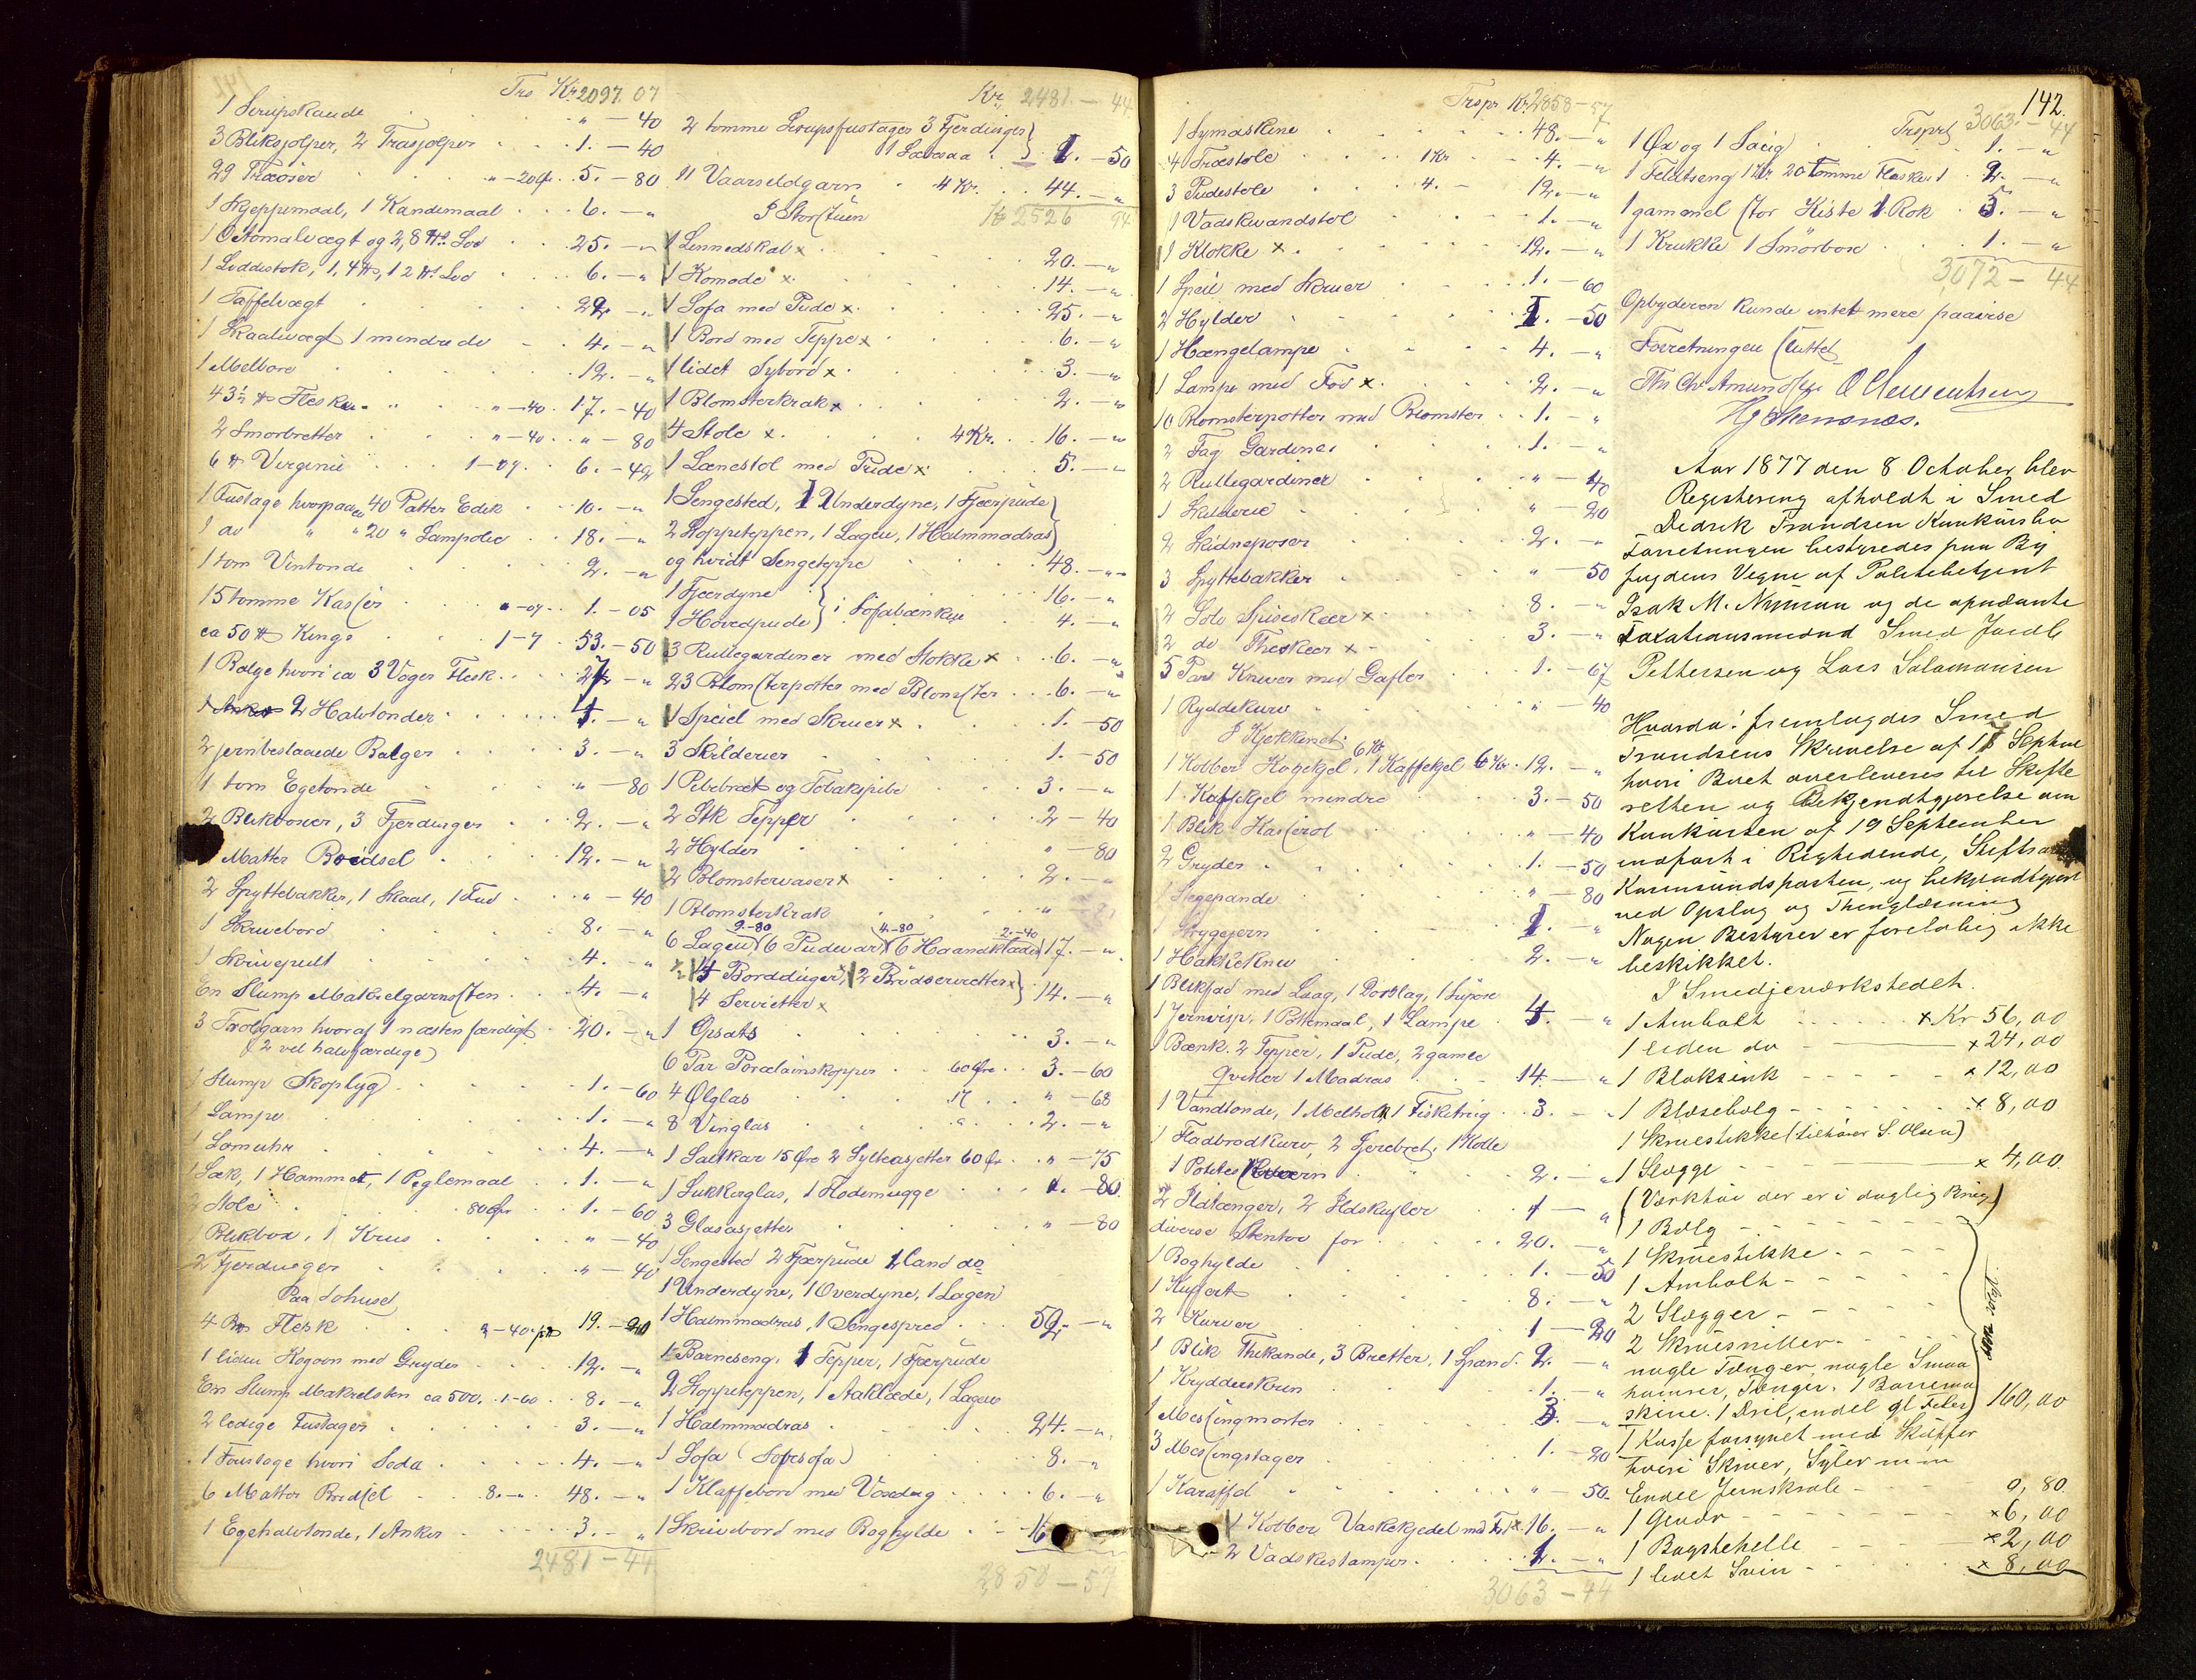 Trs Kr. 2097. 07
1 Sirupskande . . " — 40
3 Bliksjolper, 2 Træsjolper . . 1. — 40
29 Træöser . . " — 20 Ø. 5. — 80
1 Skjeppemaal, 1 Kandemaal . . 6. — "
1 Lod . . 25. — "
1 Loddestok, 1, 4 ℔, 1 2 ℔ Lod . . 6. — "
1 Taffelvægt . . 22. — "
1 Skaalvægt 1 mindre do . . 4. — "
1 Melbord . . 12. — "
43½ ℔ Flesk . . " — 40. 17. — 40
2 Smorbretter . . " — 40 . . " — 80
6 ℔ Virginie . . 1 — 07. 6. — 42
1 Fustage hvorpaa ca 40 Potter Edik . . 10. — "
1 do " " 20 " Lampolie . . 18. — "
1 tom Vintonde . . 2. — "
15 tomme Kasser . . " — 07 . . 1. — 05
ca 50 ℔ Kings . . 1 — 7 . 53. — 50
1 Balge hvori ca 3 Voger Flesk . . 27. — "
2 Halvtonder . . 1. — "
2 jernbeslaaede Balger . . 3. — "
1 tom Egetonde . . " — 80
2 Blikboxer, 3 Fjerdinger . . 2. — "
Matter Brödsel . . 12. — "
2 Spyttebakker, 1 Skaal, 1 Fad . . " — 40
1 Skrivebord . . 8. — "
1 Skrivepult . . 4. — "
En Slump Makrelgarnsten . . 4. — "
3 Trolgarn hvoraf 1 næsten færdigt . . 20. — "
(2 vel halvfærdige)
1 Slump Skoptyg . . 1. — 60
1 Lampe . . 1. — "
1 Lomuhr . . 4. — "
1 Sæk, 1 Hammer, 1 Peglemaal . . 1. — "
2 Stole . . 80 Øre . . 1. — 60
1 Blikbox, 1 Krus . . " — 40
2 Fjerdinger . . " — 40
Paa Sohuset
4 Flesk . . " — 40 pr ℔ 19. — 20
1 liden Kogovn med Gryder . . 12. — "
En Slump Makrelsten ca 500. . 1 — 60 . . 8. — "
2 ledige Fustager . . 3. — "
1 Foustage hvori Soda . . 4. — "
6 Matter Brödsel . . 8. — " . 48. — "
1 Egehalvtonde, 1 Anker . . 3. — "
2481 — 44
Kr. 2481. — 44
2 tomme Sirupsfustager 3 Fjerdinger}
1 . . } 1. — 50
11 Vaarsildgarn . 4 Kr. . . 44. — "
I Storstuen Kr 2526 94
1 Linnedskab x . . 20. — "
1 Komode x . . 14. — "
1 Sofa med Pude x . . 25. — "
1 Bord med Teppe x . . 6. — "
1 lidet Sybord x . . 3. — "
1 Blomsterkrak x . . 2. — "
4 Stole x . . 4 Kr. . . 16. — "
1 Lænestol med Pude x . . 5. — "
1 Sengested, 1 Underdyne, 1 Fjærpude}
2 Stoppeteppen, 1 Lagen, 1 Halmmadras}
og hvidt Sengeteppe . . 48. — "
1 Fjærdyne } i Sofabænken . . 16. — "
1 Hovedpude } . . 4. — "
3 Rullegardiner med Stokke x . . 6. — "
23 Blomsterpotter med Blomster . . 6. — "
1 Speiel med Skruer x . . 1. — 50
3 Skilderier . . 1. — 50
1 Pibebræt og Tobakspibe . . 3. — "
2 Stk Tepper . . 2 — 40
2 Hylder . . " — 80
2 Blomstervaser x . . 2. — "
1 Blomsterkrak . . " — 80
9.-80 4.-80 2.-40
6 Lagen, 6 Pudevar, 6 Haandklæder 17. — "
4 Borddüger, 2 Brödservietter x }
4 Servietter x } 14. — "
1 Opsats . . 3. — "
6 Par Porcelainskopper . . 60 Øre . . 3. — 60
4 Ølglas . . 17 . . " — 68
8 Vinglas . . 2. — "
1 Saltkar 15 Øre 2 Sylteasjetter 60 Ør . . " — 75
1 Sukkerglas, 1 Flodemugge . . 1. — 80
3 Glasasjetter . . " — 80
1 Sengested 2 Fjærpude 1 land do
1 Underdyne, 1 Overdyne, 1 Lagen
1 Halmmadras, 1 Sengespred . . 52. — "
1 Barneseng, 1 Tepper, 1 Fjærpude
2 Stoppeteppen, 1 Aaklæde, 1 Lagen
1 Halmmadras . . 24. — "
1 Sofa (Sofrsofa) . . 8. — "
1 Klaffebord med Voxdug . . 6. — "
1 Skrivebord med Boghylde . . 16
2858 — 57
Trspr Kr 2858 — 57
1 Symaskine . . 48. — "
4 Træstole . . 1 Kr . . 4. — "
3 Pudestole . . 4. — 12. — "
1 Vadskvandstol . . 1. — "
1 Klokke x . . 12. — "
1 Speil med Skruer . . 1. — 60
2 Hylder . . 1. — 50
1 Hængelampe . . 4. — "
1 Lampe med Fod x . . 2. — "
10 Blomsterpotter med Blomster . . 1. — "
2 Fag Gardiner . . 1. — "
2 Rullegardiner . . " — 40
1 Skilderie . . " — 20
2 Skidneposer . . 2. — "
3 Spyttebakker . . " — 50
2 Solv Spiseskeer x . . 8. — "
2 do Theskeer x . . 3. — "
5 Par Kniver med Gafler . . 1. — 67
1 Ryddekurv . . " — 40
I Kjøkkenet
1 Kobber Kogekjel 6 Kr, 1 Kaffekjel 6 Kr . 12. — "
1 Kaffekjel mindre . . 3. — 50
1 Blik Kasserol . . " — 40
2 Gryder . . 1. — 50
1 Stegepande . . " — 80
1 Strygejern . . 1. — "
1 Hakkekniv . . 2. — "
1 Blikfad med Laag, 1 Dorslag, 1
1 Jernvisp, 1 Pottemaal, 1 Lampe . 4. — "
1 Bænk. 2 Tepper, 1 Pude, 2 gamle
Qvitler 1 Madras . . 14. — "
1 Vandtonde, 1 1 Fisketrug . . 3. — "
1 Fladbrodkurv, 2 1 Kolle
1 . . 2. — "
2 Ildtænger, 2 Ildskufler . . 1 — "
diverse Stentoi for . . 20. — "
1 Boghylde . . 1. — 50
1 Kuffert . . 8. — "
2 Kurver . . 1 — 20
1 Blik Thekande, 3 Bretter, 1 Spand. 2. — "
1 Krydderskrin . . 1. — "
1 Messingmorter . . 3. — "
3 Messingstager . . 1. — 20
1 Karaffel . . " — 50
1 Kobber Vaskekjedel x . 16. — "
2 Vadskestamper . . 1. — "
3063 — 44
142.
Trsprt 3063. — 44
1 Øx og 1 Saug . . 1. — "
1 Feldtseng 1 Kr. 20 tomme Flasker 1 . 2. — "
1 gammel stor Kiste 1 Rok . 5. — "
1 Krukke 1 Smörbox . . 1. — "
3072 — 44
Opbyderen kunde intet mere paavise
Forretningen sluttet
Ths Chr Amundsen O Clementsen
Aar 1877 den 8 October blev
Registrering afholdt i Smed
Didrik Trondsen Konkursbo
Forretningen bestyredes paa By
fogdens Vegne af Politibetjent
Isak M. Nyman og de opnævnte
Taxationsmænd Smed Jacob
Pettersen og Lars Salamonsen
Hvorda: fremlagdes Smed
Trondsens Skrivelse af 18 Septbr
hvori Boet overleveres til Skifte
retten og Bekjendtgjørelse om
Konkursen af 19 September
indført i Rigstidende, Stifts
Karmsundsposten, og bekjendtgjort
ved Opslag og Thinglæsning
Nogen Bestyrer er foreløbig ikke
beskikket.
I Smedjeværkstedet.
1 Ambolt . . x Kr 56,00
1 liden do — x 24,00
1 Bloksink - - - x 12,00
1 Blæsebolg - - - x 8,00
1 Skruestikke (tilhører S. Olsen)
1 Slægge — x 4,00
(Værktøi der er i daglig Brug)
1 Bælg - - -
1 Skruestikke - - -
1 Ambolt - - -
2 Slægger - - -
2 Skruesnitter - - -
nogle Tænger, nogle Smaa
hamrer, Tænger. 1 Borrema
skine. 1 Dril, endel gl Filer } 160,00
1 Kasse forsynet med Skuffer
hvori Skruer, Syler m m
Endel Jernskrab - - 0,80
1 Geværr - - - x 6,00
1 Bagstehelle - - x 2,00
1 lidet Sviin - - x 8,00